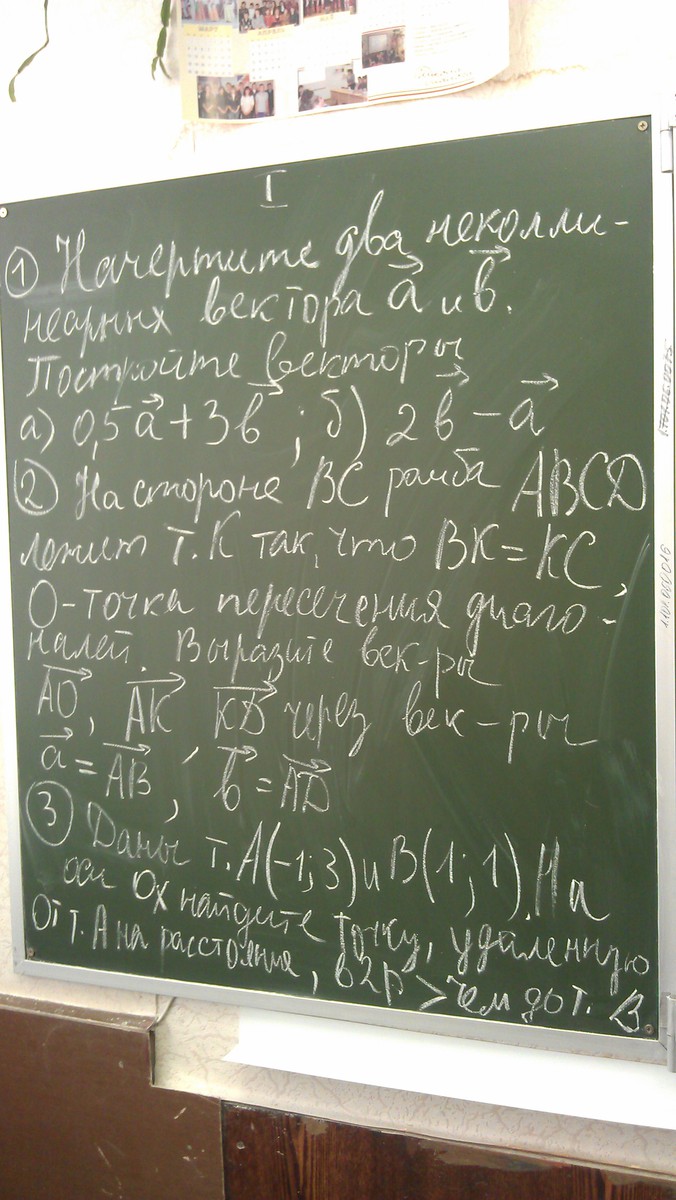 МАРТ
АПРЕЛЬ
I
① Начертите два неколли-
неарных вектора a⃗ и b⃗.
Постройте векторы
а) 0,5a⃗+3b⃗; б) 2b⃗-a⃗
② На стороне BC ромба ABCD
лежит т. K так, что BK=KC,
O-точка пересечения диаго-
налей. Выразите век-ры
AO⃗, AK⃗, KD⃗ через век-ры
a⃗=AB⃗, b⃗=AD⃗
③ Даны т. A(-1;3) и B(1;1). На
оси Ox найдите точку, удаленную
От т. A на расстояние, в 2р > чем до т. B